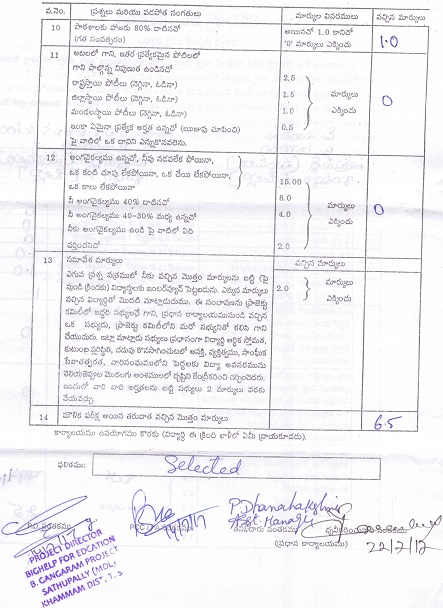 వ.నెం. ప్రశ్నలు మరియు వడపోత సంగతులు మార్కుల వివరములు వచ్చిన మార్కులు
10 పాఠశాలకు హాజరు 80% దాటినచో అయినచో 1.0 కానిచో 1.0
(గత సంవత్సరం) '0' మార్కులు ఎక్కించు
11 ఆటలలో గాని, ఇతర ప్రత్యేకమైన పోటీలలో
గాని పాల్గొన్న నిపుణత ఉండినచో
రాష్ట్రస్థాయి పోటీలు (నెగ్గినా, ఓడినా) 2.5
జిల్లాస్థాయి పోటీలు (నెగ్గినా, ఓడినా) 1.5 మార్కులు 0
మండలస్థాయి పోటీలు (నెగ్గినా, ఓడినా) 1.0 ఎక్కించు
ఇంకా ఏమైనా ప్రత్యేక అర్హత ఉన్నచో (ఋజువు చూపించి) 0.5
పై వాటిలో ఒక దానిని ఎన్నుకొనవలెను.
12 అంగవైకల్యము ఉన్నచో, నీవు నడవలేక పోయినా,
ఒక కంటి చూపు లేకపోయినా, ఒక చేయి లేకపోయినా,
ఒక కాలు లేకపోయినా 15.00
నీ అంగవైకల్యము 40% దాటినచో 8.0 మార్కులు 0
నీ అంగవైకల్యము 40-30% మధ్య ఉన్నచో 4.0 ఎక్కించు
నీకు అంగవైకల్యము ఉండి పై వాటిలో ఏది
వర్తించనిచో 2.0
13 సమావేశ మార్కులు వచ్చిన మార్కులు
ఎగువ ప్రశ్న పత్రములో నీకు వచ్చిన మొత్తం మార్కులను బట్టి (పై
నుండి క్రిందకు) విద్యార్థులకు ఇంటర్వ్యూకి పెట్టబడును. ఎక్కువ మార్కులు 2.0 మార్కులు
వచ్చిన విద్యార్థితో మొదటి మాట్లాడుదుము. ఈ సంభాషణను ప్రాజెక్టు ఎక్కించు
కమిటీలో ఇద్దరు సభ్యులచే గాని, ప్రధాన కార్యాలయమునుండి వచ్చిన
ఒక సభ్యుడు, ప్రాజెక్టు కమిటీలోని మరో సభ్యునితో కలిసి గాని
చేయుదురు. ఇట్లా మాట్లాడు సభ్యులు ప్రధానంగా విద్యార్థి ఆర్థిక స్తోమత,
కుటుంబ పరిస్థితి, చదువు కొనసాగించుటలో ఆసక్తి, వ్యక్తిత్వము, సాంఘిక
సేవాతత్పరత, వారికుటుంబములోని పెద్దలకు విద్యా అవసరమును
మార్కులు 2 మార్కులు వరకు
వేయవచ్చు.
14 మౌలిక పరీక్ష అయిన తరువాత వచ్చిన మొత్తం మార్కులు 6.5
కార్యాలయము ఉపయోగము కొరకు (విద్యార్థి ఈ క్రింది ఖాళీలో ఏమీ వ్రాయకూడదు).
ఫలితము: Selected
P. Dhanalakshmi
Asst. Manager
(ప్రధాన కార్యాలయము)
22/2/17
PROJECT DIRECTOR
BIGHELP FOR EDCATION
B. GANGARAM PROJECT
SATHUPALLY (MDL)
KHAMMAM DIST. T.S